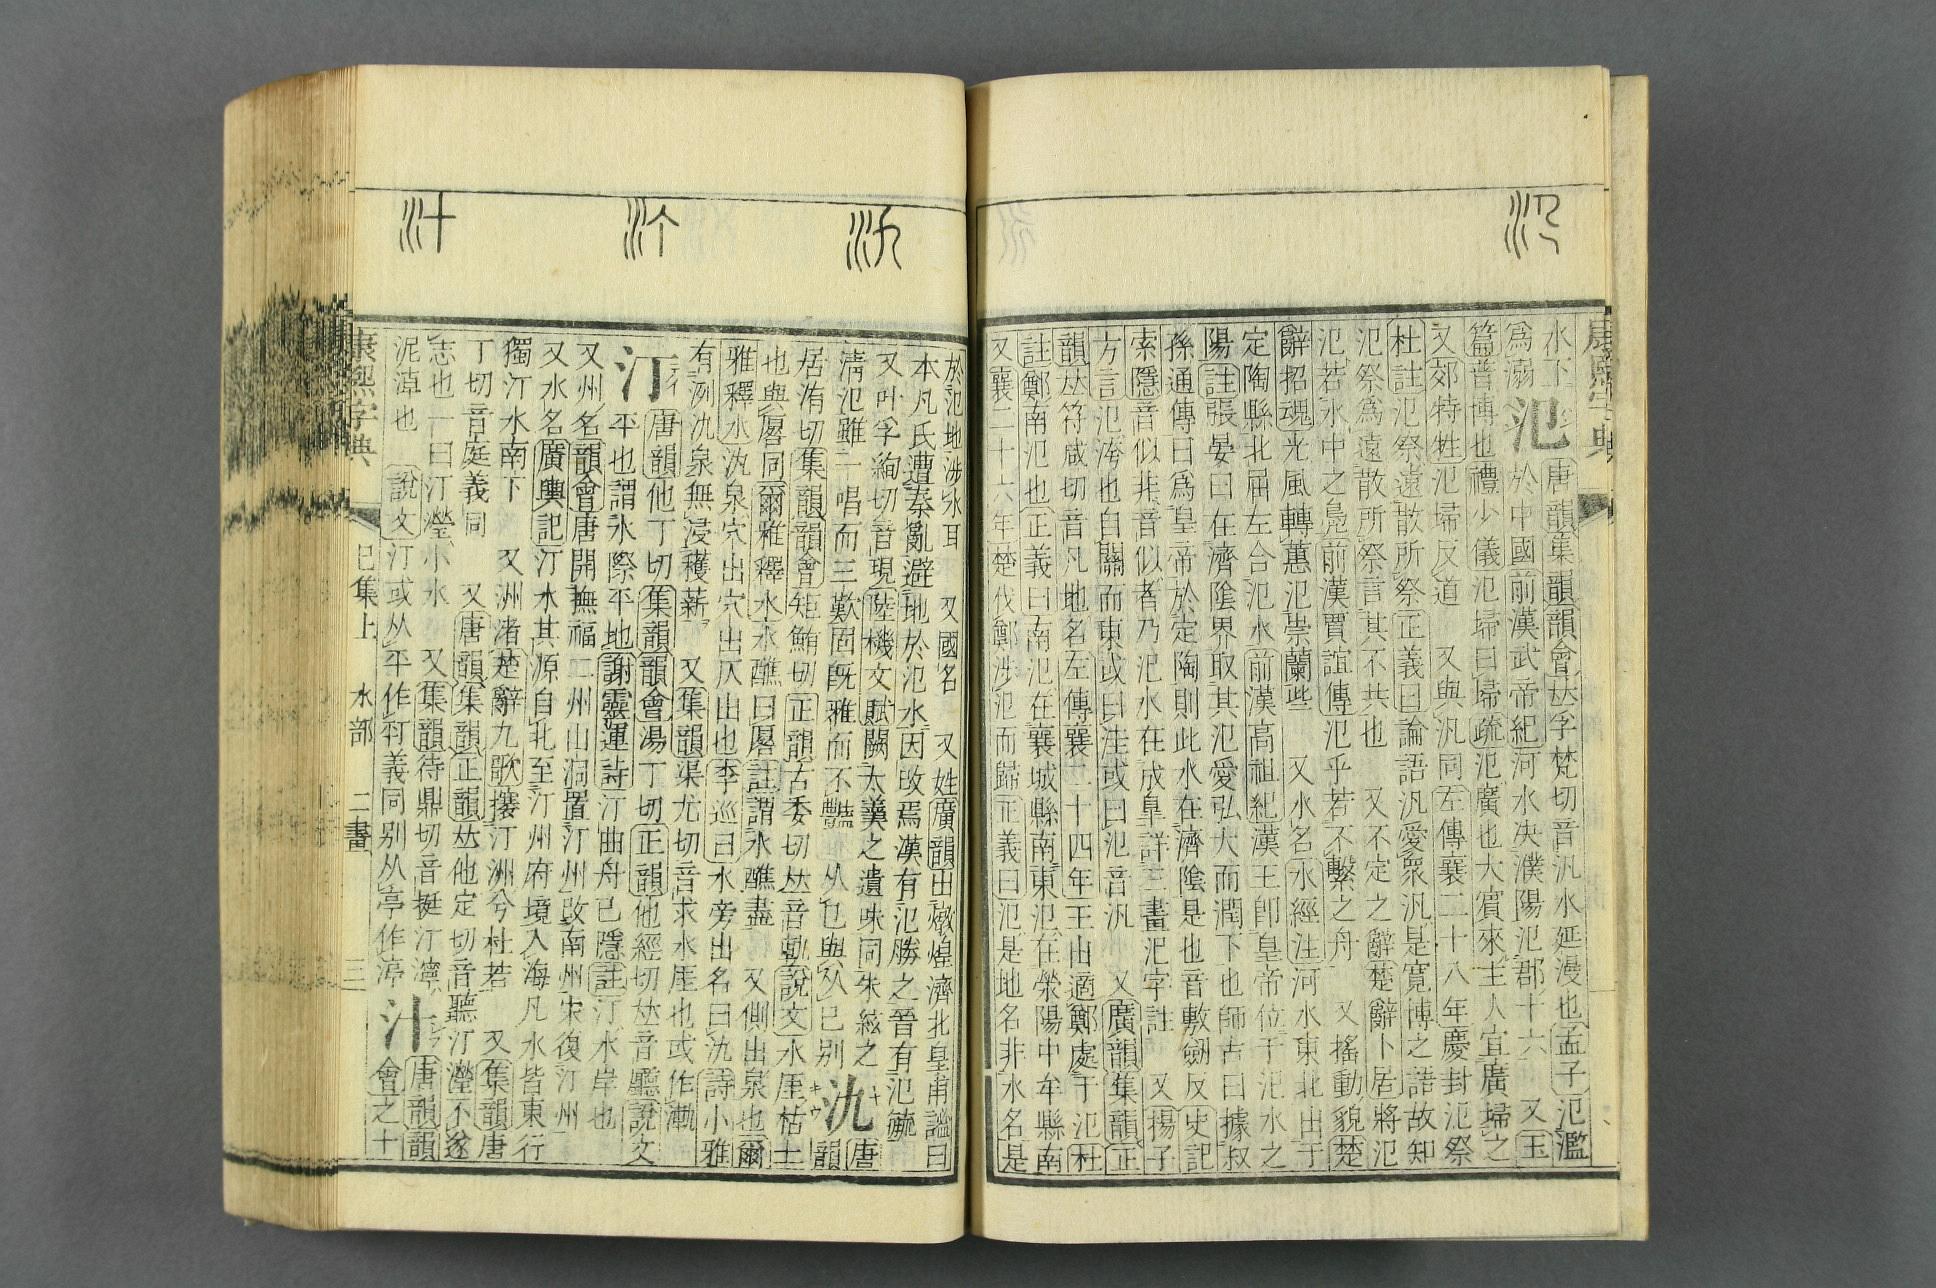 康熙字典
水下
爲溺 氾 唐韻集韻韻會𠀤孚梵切音汎水延漫也孟子氾濫
於中國前漢武帝紀河水決濮陽氾郡十六 又玉
篇普博也禮少儀氾埽曰埽疏氾廣也大賓來主人宜廣埽之
又郊特牲氾埽反道 又與汎同左傳襄二十八年慶封氾祭
杜註氾祭遠散所祭正義曰論語汎愛衆汎是寬博之語故知
氾祭爲遠散所祭言其不共也 又不定之辭楚辭卜居將氾
氾若水中之鳧前漢賈誼傳氾乎若不繫之舟 又搖動貌楚
辭招魂光風轉蕙氾崇蘭些 又水名水經注河水東北出于
定陶縣北屈左合氾水前漢高祖紀漢王卽皇帝位于氾水之
陽註張晏曰在濟陰界取其氾愛弘大而潤下也師古曰據叔
孫通傳曰爲皇帝於定陶則此水在濟陰是也音敷劒反史記
索隱音似非音似者乃汜水在成皐詳三畫汜字註 又揚子
方言氾洿也自關而東或曰洼或曰氾音汎 又廣韻集韻正
韻𠀤符咸切音凡地名左傳襄二十四年王出適鄭處于氾杜
註鄭南氾也正義曰南氾在襄城縣南東氾在滎陽中牟縣南
又襄二十六年楚伐鄭涉氾而歸正義曰氾是地名非水名是
於氾地涉水耳 又國名 又姓廣韻出燉煌濟北皇甫謐曰
本凡氏遭秦亂避地於氾水因改焉漢有氾勝之晉有氾毓
又叶孚絢切音現陸機文賦闕太羹之遺味同朱絃之
淸氾雖一唱而三歎固旣雅而不豔 从㔾與从巳別 氿 唐
韻
居洧切集韻韻會矩鮪切正韻古委切𠀤音軌說文水厓枯土
也與厬同爾雅釋水水醮曰厬註謂水醮盡 又側出泉也爾
雅釋水氿泉穴出穴出仄出也李巡曰水旁出名曰氿詩小雅
有洌氿泉無浸穫薪 又集韻渠尤切音求水厓也或作漸
汀 唐韻他丁切集韻韻會湯丁切正韻他經切𠀤音聽說文
平也謂水際平地謝靈運詩汀曲舟已隱註汀水岸也
又州名韻會唐開撫福二州山洞置汀州改南州宋復汀州
又水名廣輿記汀水其源自北至汀州府境入海凡水皆東行
獨汀水南下 又洲渚楚辭九歌搴汀洲兮杜若 又集韻唐
丁切音庭義同 又唐韻集韻正韻𠀤他定切音聽汀瀅不遂
志也一曰汀瀅小水 又集韻待鼎切音挺汀濘
泥淖也 說文汀或从平作𣲆義同別从亭作渟 汁 唐韻韻
會之十
康熙字典 巳集上 水部 二畫 三